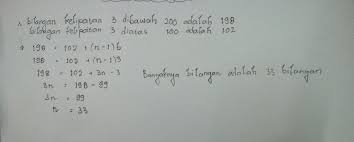 bilangan kelipatan 3 dibawah 200 adalah 198
bilangan kelipatan 3 diatas 100 adalah 102
198 = 102 + (n-1)6
198 = 102 + (n-1)3
198 = 102 + 3n - 3
3n = 198 - 99
3n = 99
n = 33
Banyaknya bilangan adalah 33 bilangan